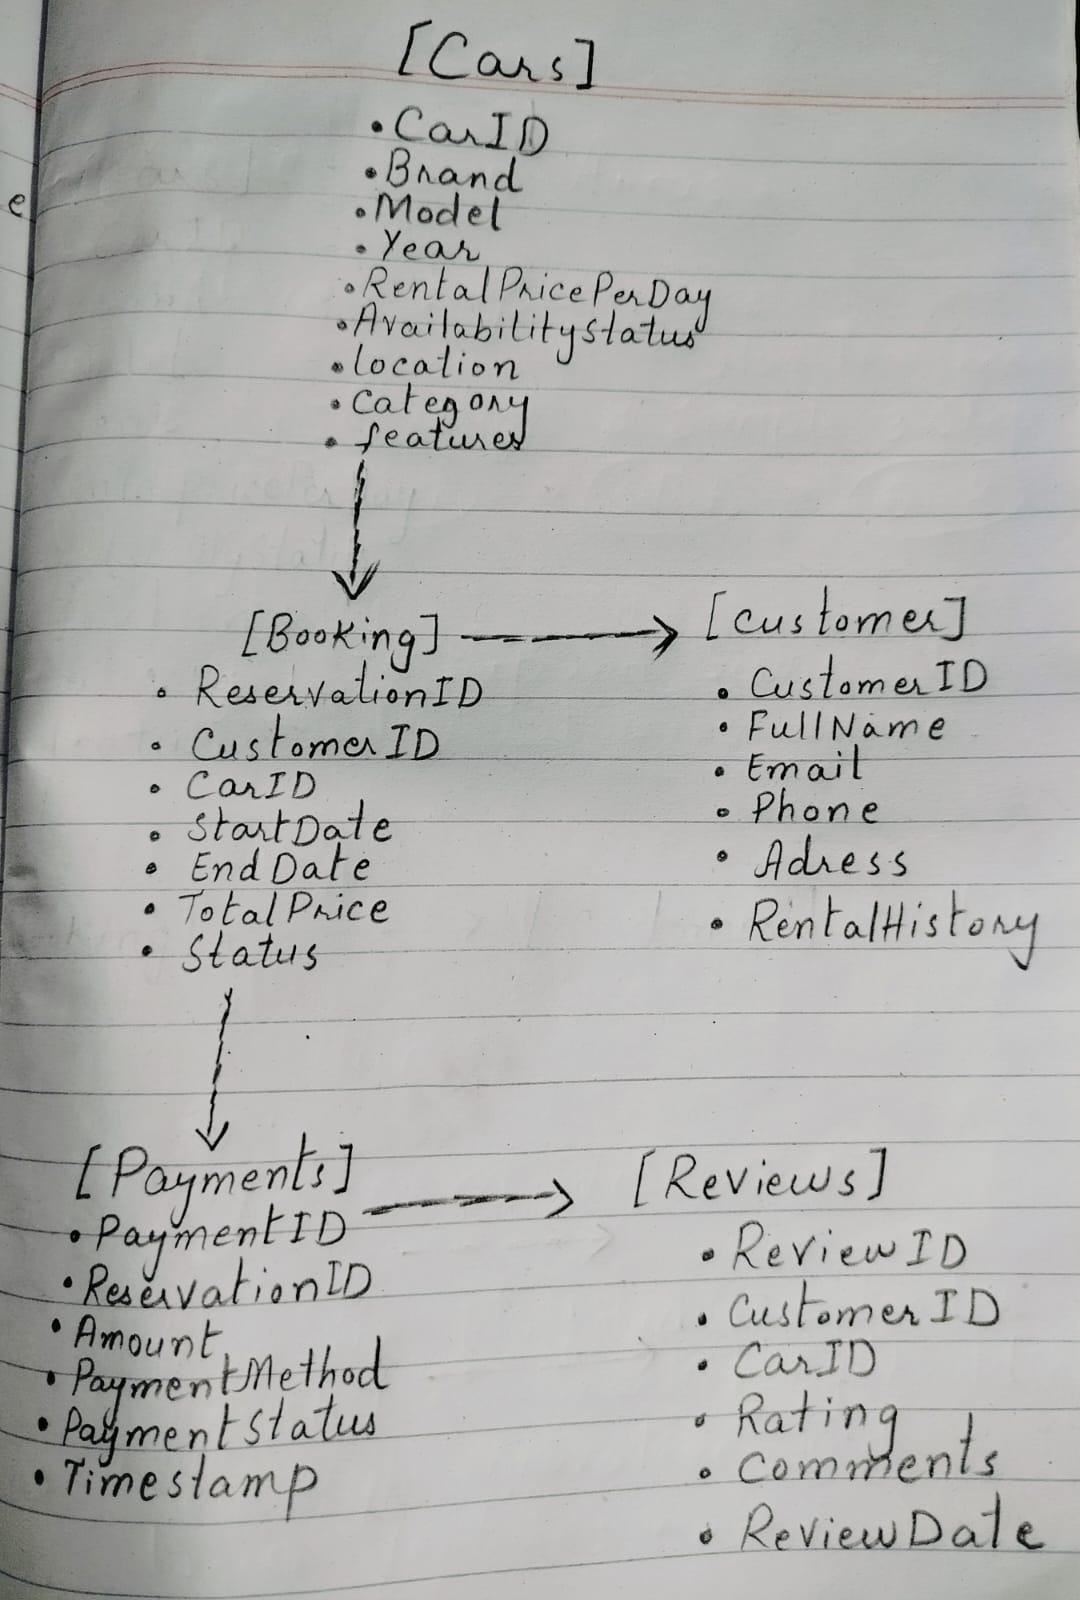 [Cars]
• CarID
• Brand
• Model
• Year
• RentalPricePerDay
• AvailabilityStatus
• location
• Category
• features
[Booking]
• ReservationID
• CustomerID
• CarID
• StartDate
• EndDate
• TotalPrice
• Status
[Customer]
• CustomerID
• FullName
• Email
• Phone
• Adress
• RentalHistory
[Payments]
• PaymentID
• ReservationID
• Amount
• PaymentMethod
• PaymentStatus
• Timestamp
[Reviews]
• ReviewID
• CustomerID
• CarID
• Rating
• Comments
• ReviewDate
e